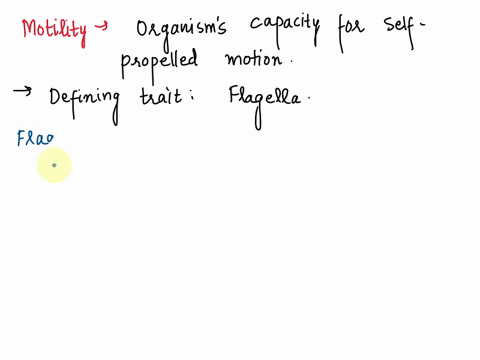 Motility → Organism's capacity for self-
propelled motion.
→ Defining trait: Flagella.
Flag